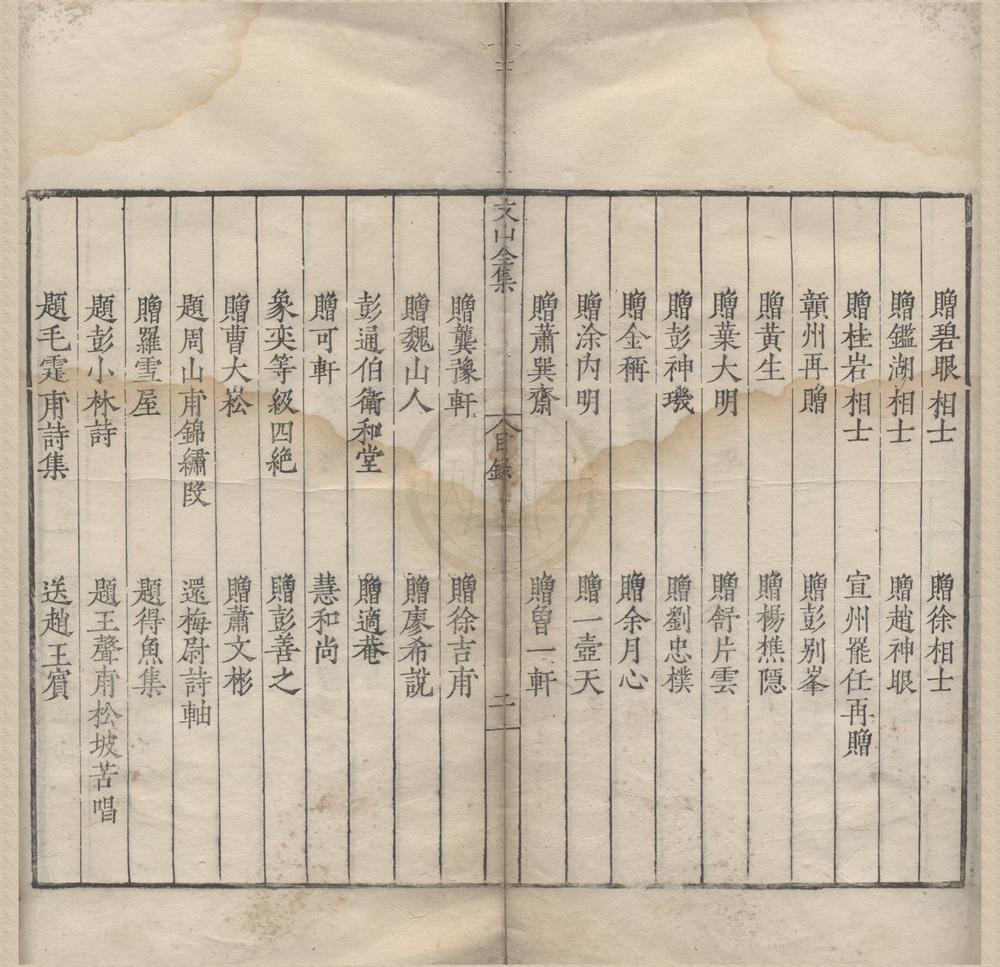 贈碧眼相士　贈徐相士
贈鑑湖相士　贈趙神眼
贈桂岩相士　宣州罷任再贈
贛州再贈　贈彭別峯
贈黃生　贈楊樵隱
贈葉大明　贈舒片雲
贈彭神璣　贈劉忠樸
贈金稱　贈余月心
贈涂內明　贈一壺天
贈蕭巽齋　贈曾一軒
文山全集　目錄　二
贈龔豫軒　贈徐吉甫
贈魏山人　贈廖希說
彭通伯衛和堂　贈適菴
贈可軒　慧和尚
象奕等級四絕　贈彭善之
贈曹大崧　贈蕭文彬
題周山甫錦繡段　還梅尉詩軸
贈羅雪屋　題得魚集
題彭小林詩　題王聲甫松坡苦唱
題毛霆甫詩集　送趙王賓